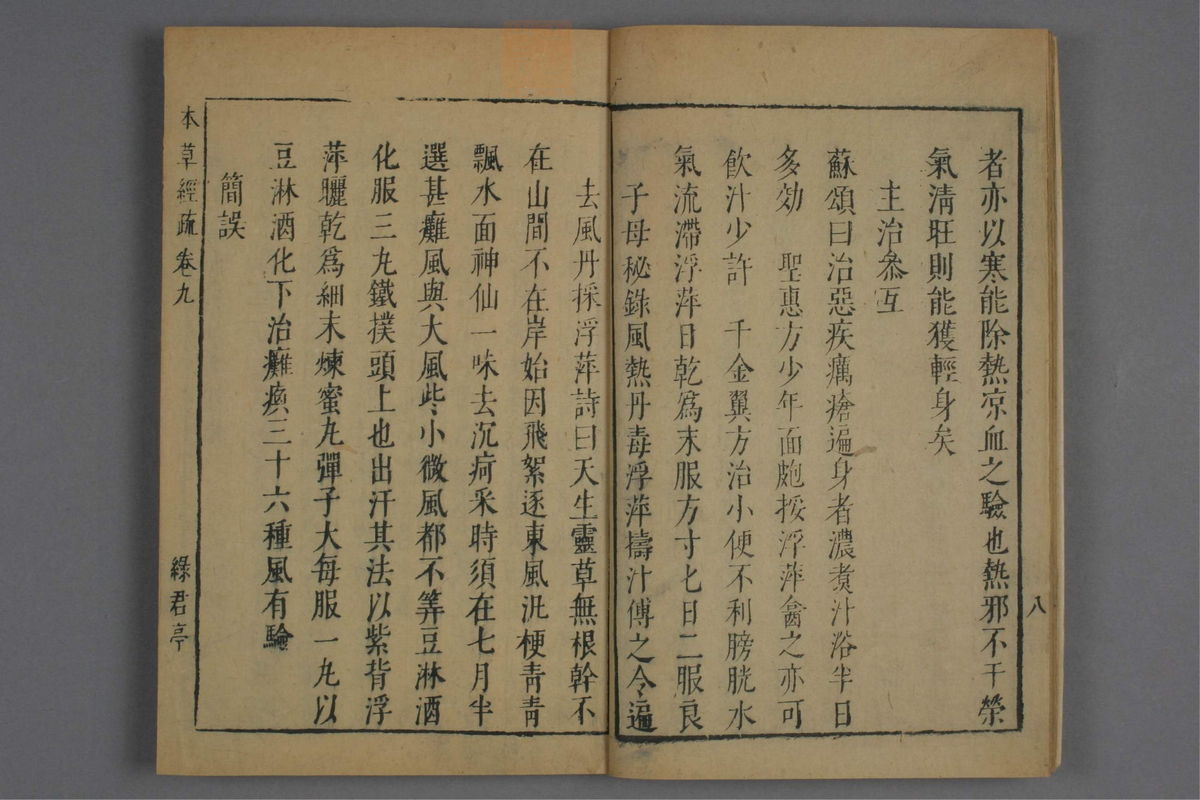 者亦以寒能除熱凉血之驗也熱邪不干榮
氣淸旺則能獲輕身矣
主治叅互
蘇頌曰治惡疾癘瘡遍身者濃煑汁浴半日
多効　聖惠方少年面皰挼浮萍盦之亦可
飮汁少許　千金翼方治小便不利膀胱水
氣流滯浮萍日乾爲末服方寸匕日二服良
子母秘錄風熱丹毒浮萍擣汁傅之令遍
八
去風丹採浮萍詩曰天生靈草無根幹不
在山間不在岸始因飛絮逐東風汎梗靑靑
飄水面神仙一味去沉疴采時須在七月半
選甚癱風與大風些小微風都不筭豆淋酒
化服三丸鐵撲頭上也出汗其法以紫背浮
萍曬乾爲細末煉蜜丸彈子大每服一丸以
豆淋酒化下治癱瘓三十六種風有驗
簡誤
本草經疏 卷九
綠君亭